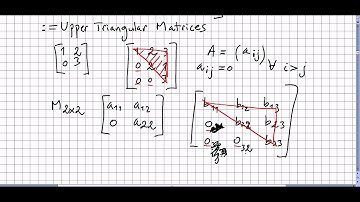 := Upper Triangular Matrices
[1 2
0 3]
[1 2 3
0 2 1
0 0 3]
A = (aij)
aij = 0 ∀ i > j
M2x2 [a11 a12
0 a22]
[b11 b12 b13
0 b22 b23
0 0 32 b23]